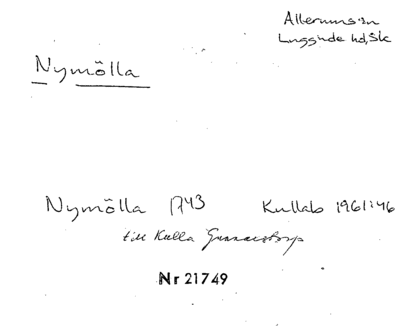 Allerums sn
Luggude hd, Sk
Nymölla
Nymölla 1743 Kullab 1961:46
till Kulla Gunnarstorp
Nr 21749